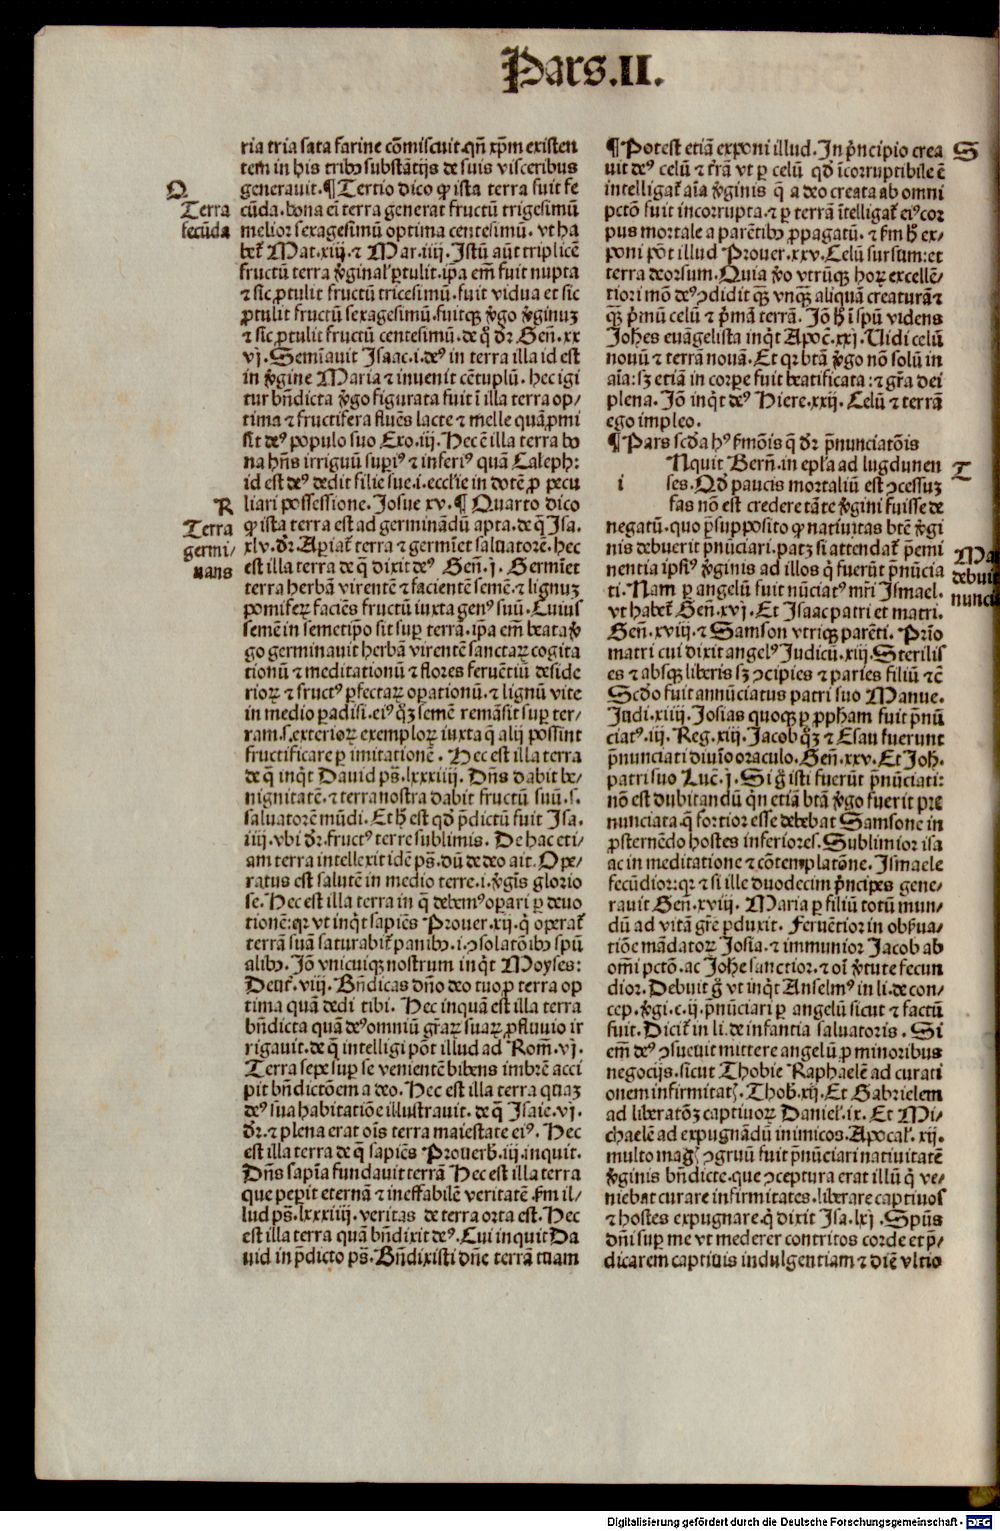 Pars.II.
ria tria sata farine cōmiscuit.qn̄ xp̄m existen
tem in his tribꝫ substātijs de suis visceribus
Q
generauit.¶Tertio dico ꝙ ista terra fuit fe
Terra
cūda.bona eī terra generat fructū trigesimū
fecūda
melior sexagesimū optima centesimū. vt ha
bet᷑ Mat.xiij.⁊ Mar.iiij.Istū aūt triplicē
fructū terra v̓ginal' ꝑtulit.ip̄a em̄ fuit nupta
⁊ sic ꝓtulit fructū tricesimū.fuit vidua et sic
ꝓtulit fructū sexagesimū.fuitqꝫ v̓go v̓ginuꝫ
⁊ sic ꝓtulit fructū centesimū.de q̊ dr̄ Gen̄.xx
vj.Semīauit Isaac.i.deꝰ in terra illa id est
in v̓gine Maria ⁊ inuenit cētuplū.hec igi
tur bn̄dicta v̓go figurata fuit ī illa terra op/
tima ⁊ fructifera fluēs lacte ⁊ melle quā ꝓmi
sit deꝰ populo suo Exo.iij.Hec ē illa terra bo
na hn̄s irriguū superiꝰ ⁊ inferiꝰ quā Caleph:
id est deꝰ dedit filie sue.i.eccl'ie in dotē ꝓ pecu
R
liari possessione.Josue xv.¶Quarto dico
Terra
ꝙ ista terra est ad germinādū apta.de q̄ Isa.
germi/
xlv.dr̄.Aꝑiat᷑ terra ⁊ germīet saluatorē.hec
nans
est illa terra de q̄ dixit deꝰ Gen̄.j.Germīet
terra herbā virentē ⁊ facientē semē.⁊ lignuꝫ
pomiferꝝ faciēs fructū iuxta genꝰ suū.Cuius
semē in semetip̄o sit suꝑ terrā.ip̄a em̄ beata v̓
go germinauit herbā virentē sanctaꝝ cogita
tionū ⁊ meditationū ⁊ flores feruētiū deside
rioꝝ ⁊ fructꝰ ꝑfectaꝝ oꝑationū.⁊ lignū vite
in medio ꝑadisi.eiꝰ q̊ꝫ semē remāsit suꝑ ter/
ram.s.exterioꝝ exemploꝝ iuxta q̄ alij possint
fructificare ꝑ imitationē.Hec est illa terra
de q̄ inq̇t Dauid ps̄.lxxxiiij.Dn̄s dabit be/
nignitatē.⁊ terra nostra dabit fructū suū.s.
saluatorē mūdi.Et h̄ est qd̓ p̄dictū fuit Isa.
iiij.vbi dr̄.fructꝰ terre sublimis.De hac eti/
am terra intellexit idē ps̄.dū de deo ait.Ope/
ratus est salutē in medio terre.i.v̓gis glorio
se.Hec est illa terra in q̄ debemꝰ oꝑari ꝑ deuo
tionē:qꝛ vt inq̇t sapiēs Prouer.xij.q̇ operat᷑
terrā suā saturabit᷑ panibꝫ.i.ꝯsolatōibꝫ spū
alibꝫ.Iō vnicuiqꝫ nostrum inq̇t Moyses:
Deut᷑.viij.Bn̄dicas dn̄o deo tuo ꝓ terra op
tima quā dedi tibi.Hec inquā est illa terra
bn̄dicta quā deꝰ omniū gr̄aꝝ suaꝝ ꝓfluuio ir
rigauit.de q̄ intelligi pōt illud ad Rom̄.vj.
Terra sepe suꝑ se venientē bibens imbrē acci
pit bn̄dictōem a deo.Hec est illa terra quaꝫ
deꝰ sua habitatiōe illustrauit.de q̄ Isaie.vj.
dr̄.⁊ plena erat oīs terra maiestate eiꝰ.Hec
est illa terra de q̄ sapiēs Prouerb̓.iij.inquit.
Dn̄s sapīa fundauit terrā Hec est illa terra
que peꝑit eternā ⁊ ineffabilē veritatē.ẜm il/
lud ps̄.lxxxiiij.veritas de terra orta est.Hec
est illa terra quā bn̄dixit deꝰ.Cui inquit Da
uid in p̄dicto ps̄.Bn̄dixisti dn̄e terrā tuam
¶Potest etiā exponi illud.In p̓ncipio crea
S
uit deꝰ celū ⁊ t̄rā vt ꝑ celū qd̓ īcorruptibile ē
intelligat᷑ aīa v̓ginis q̄ a deo creata ab omni
pctō fuit incorrupta.⁊ ꝑ terrā ītelligat᷑ eiꝰ cor
pus mortale a parētibꝫ ꝓpagatū.⁊ ẜm h̄ ex/
poni pōt illud Prouer.xxv.Celū sursum:et
terra deorsum.Quia v̓o vtrūqꝫ hoꝝ excellē/
tiori mō deꝰ ꝯdidit qꝫ vnqꝫ aliquā creaturā ⁊
qꝫ p̓mū celū ⁊ p̓mā terrā.Iō h̄ ī spū videns
Johēs euāgelista inq̇t Apoc̄.xxj.Uidi celū
nouū ⁊ terrā nouā.Et qꝛ btā v̓go nō solū in
aīa:sꝫ etiā in corꝑe fuit beatificata:⁊ gr̄a dei
plena.Iō inq̇t deꝰ Hiere.xxij.Celū ⁊ terrā
ego impleo.
¶Pars scd̓a hꝰ ẜmōis q̄ dr̄ p̄nunciatōis
Nquit Bern̄.in epl'a ad lugdunen
T
i
ses.Qd̓ paucis mortaliū est ꝯcessuꝫ
fas nō est credere tāte v̓gini fuisse de
negatū.quo p̄supposito ꝙ natiuitas btē v̓gi
nis debuerit p̄nūciari.patꝫ si attendat᷑ p̄emi
Ma
nentia ipsiꝰ v̓ginis ad illos q̇ fuerūt p̄nūcia
debuit
ti.Nam ꝑ angelū fuit nūciatꝰ mr̄i Ismael.
nuncia
vt habet᷑ Gen̄.xvj.Et Isaac patri et matri.
Gen̄.xviij.⁊ Samson vtriqꝫ parēti.Prīo
matri cui dixit angelꝰ Judicū.xiij.Sterilis
es ⁊ absqꝫ liberis sꝫ ꝯcipies ⁊ paries filiū ⁊c̄
Scd̓o fuit annūciatus patri suo Manue.
Judi.xiij.Josias quoqꝫ ꝑ ꝓpham fuit p̄nū
ciatꝰ.iij.Reg.xiij.Jacob q̊ꝫ ⁊ Esau fuerunt
p̄nunciati diuīo oraculo.Gen̄.xxv.Et Joh̄.
patri suo Luc̄.j.Si g̊ isti fuerūt p̄nūciati:
nō est dubitandū q̇n etiā btā v̓go fuerit pre
nunciata.q̄ fortior esse debebat Samsone in
ꝓsternēdo hostes inferiores.Sublimior isa
ac in meditatione ⁊ cōtemplatōne.Ismaele
fecūdior:qꝛ ⁊ si ille duodecim p̓ncipes gene/
rauit Gen̄.xviij.Maria ꝑ filiū totū mun/
dū ad vitā gr̄e ꝑduxit.Feruētior in obẜua/
tiōe mādatoꝝ Josia.⁊ immunior Jacob ab
om̄i pctō.ac Johe sanctior.⁊ oī v̓tute fecun
dior.Debuit g̊ vt inq̇t Anselmꝰ in li.de con/
cep.v̓gi.c.ij.p̄nūciari ꝑ angelū sicut ⁊ factū
fuit.Dicit᷑ in li.de infantia saluatoris.Si
em̄ deꝰ ꝯsueuit mittere angelū ꝓ minoribus
negocijs.sicut Thobie Raphaelē ad curati
onem infirmitatꝭ.Thob̓.xij.Et Gabrielem
ad liberatōꝫ captiuoꝝ Daniel'.ix.Et Mi/
chaelē ad expugnādū inimicos.Apocal'.xij.
multo magꝭ ꝯgruū fuit p̄nūciari natiuitatē
v̓ginis bn̄dicte.que ꝯceptura erat illū q̇ ve/
niebat curare infirmitates.liberare captiuos
⁊ hostes expugnare.q̇ dixit Isa.lxj.Spūs
dn̄i suꝑ me vt mederer contritos corde et p̄/
dicarem captiuis indulgentiam ⁊ diē vltio
Digitalisierung gefördert durch die Deutsche Forschungsgemeinschaft - DFG